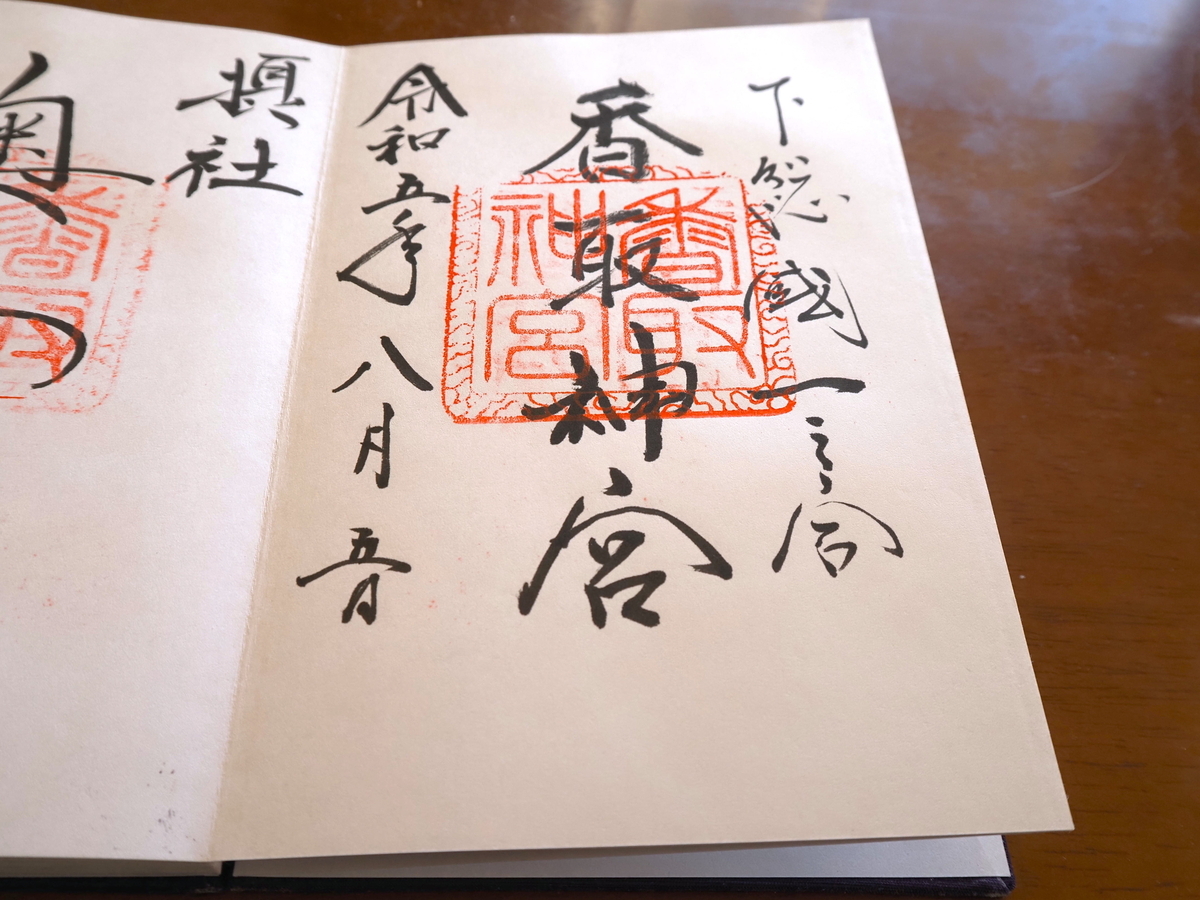 下総國一之宮
香取神宮
香取神宮
令和五年八月五日
摂社
奥